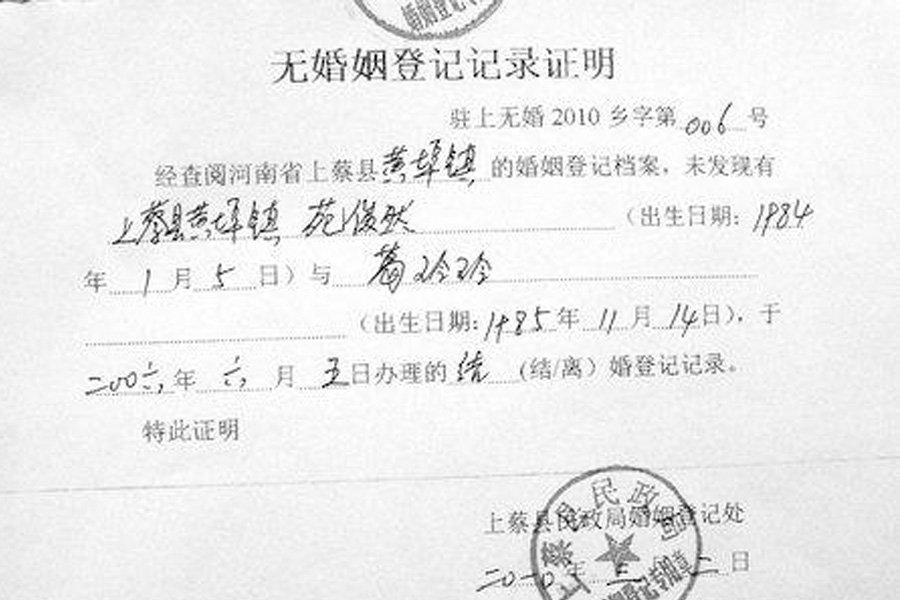 婚姻登记专
无婚姻登记记录证明
驻上无婚2010乡字第006号
经查阅河南省上蔡县黄埠镇的婚姻登记档案，未发现有
上蔡县黄埠镇 苑俊然（出生日期：1984
年1月5日）与 葛玲玲
（出生日期：1985年11月14日），于
二00六年六月五日办理的结（结/离）婚登记记录。
特此证明
上蔡县民政局婚姻登记处
二0一0年三月二日
上蔡县民政局
婚姻登记专用章